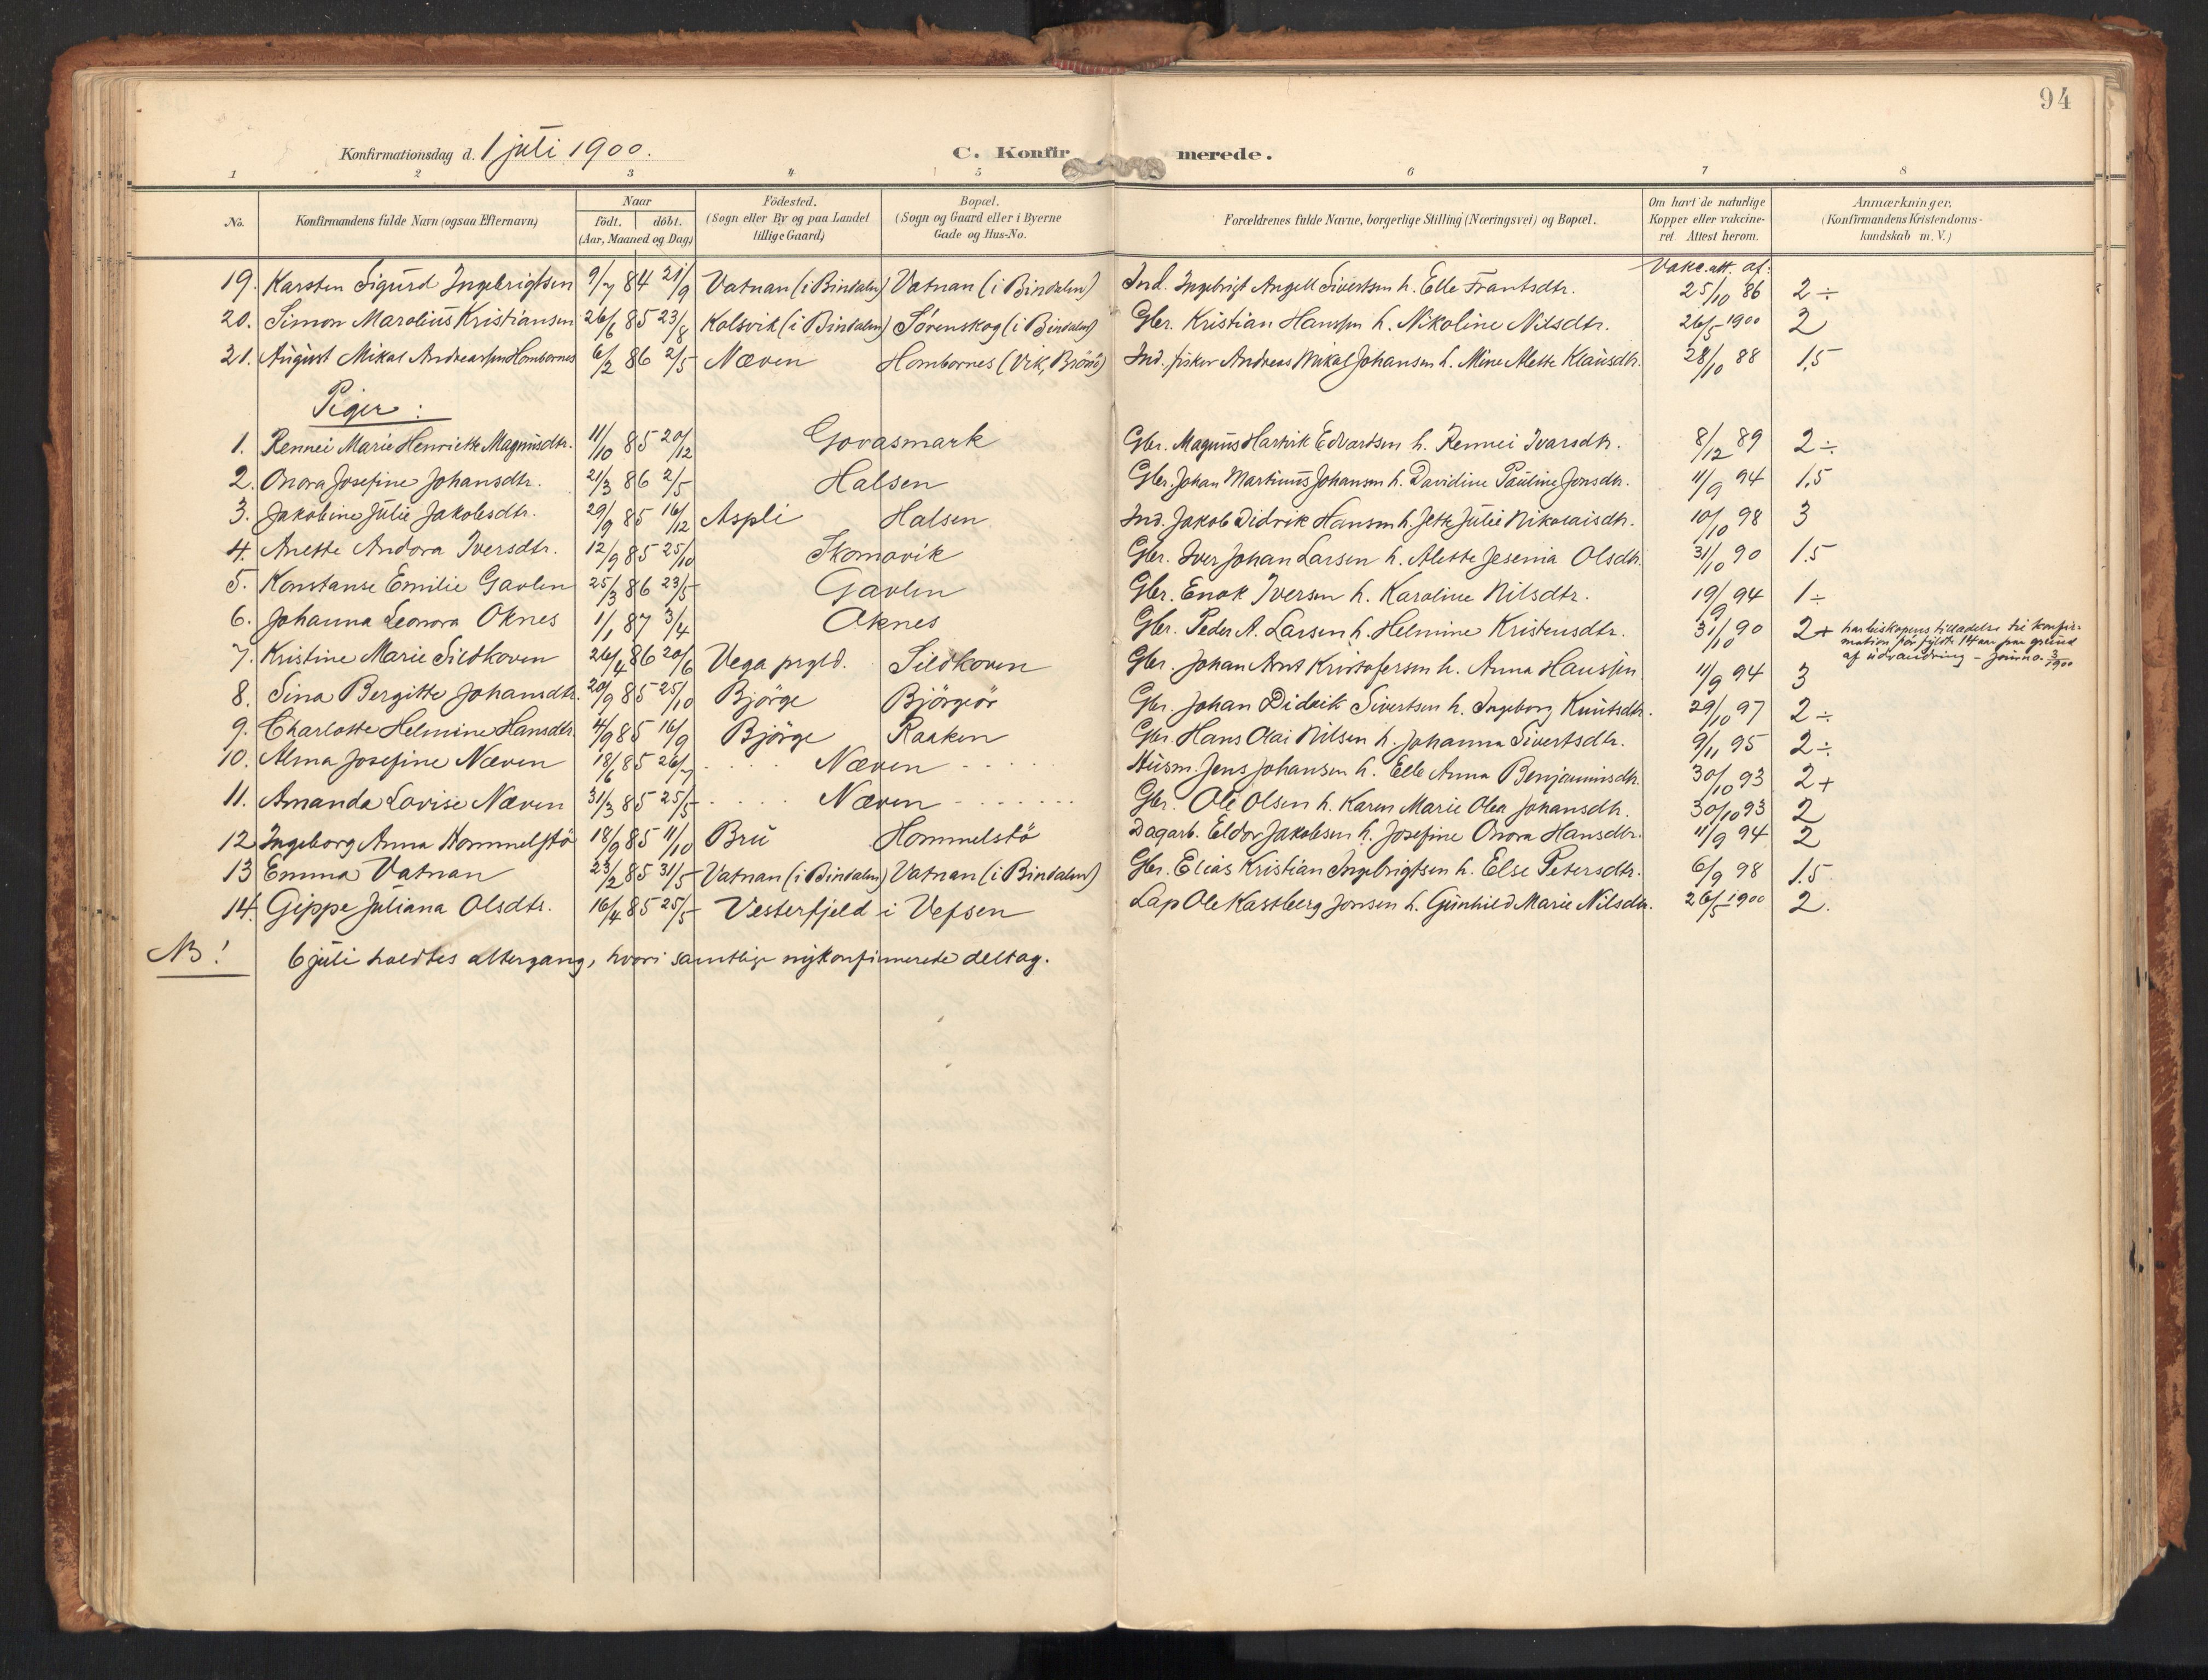 94
Konfirmationsdag d. 1 juli 1900. C. Konfirmerede.
1 2 3 4 5 6 7 8
No. Konfirmandens fulde Navn (ogsaa Efternavn) Naar födt. döbt. (Aar, Maaned og Dag) Födested. (Sogn eller By og paa Landet tillige Gaard) Bopæl. (Sogn og Gaard eller i Byerne Gade og Hus-No. Forældrenes fulde Navne, borgerlige Stilling (Næringsvei) og Bopæl. Om havt de naturlige Kopper eller vakcineret. Attest herom. Anmærkninger. (Konfirmandens Kristendomskundskab m. V.)
Vakc.att. af:
19. Karsten Sigurd Ingebrigtsen 9/7 84 21/9 Vatnan (i Bindalen) Vatnan (i Bindalen) Ind. Ingebrigt Angell Sivertsen h. Elle Frantsdtr. 25/10 86 2÷
20. Simon Marolius Kristiansen 26/6 85 23/8 Kalsvik (i Bindalen) Sörenskog (i Bindalen) Gbr. Kristian Hanssen h. Nikoline Nilsdtr. 26/5 1900 2
21. August Mikal Andreassen Hombornes 6/2 86 2/5 Næven Hombornes (Vik, Brönö) Ind. fisker Andreas Mikal Johansen h. Mine Alette Klausdtr. 28/10 88 1,5
Piger:
1. Rennei Marie Henriette Magnusdtr. 11/10 85 20/12 Govasmark Gbr. Magnus Hartvik Edvardsen h. Rennei Ivarsdtr. 8/12 89 2÷
2. Onora Josefine Johansdtr. 21/3 86 2/5 Halsen Gbr. Johan Martinus Johansen h. Davidine Pauline Jonsdtr. 11/9 94 1,5
3. Jakobine Julie Jakobsdtr. 29/9 85 16/12 Aspli Halsen Ind. Jakob Didrik Hansen h. Jette Julie Nikolaisdtr. 10/10 98 3
4. Anette Andora Iversdtr. 12/9 85 25/10 Skomovik Gbr. Iver Johan Larsen h. Alette Jesenia Olsdtr. 31/10 90 1.5
5. Konstanse Emilie Gavlen 25/3 86 23/5 Gavlen Gbr. Enok Iversen h. Karoline Nilsdtr. 19/9 94 1÷
6. Johanna Leonora Oknes 1/1 87 3/4 Oknes Gbr. Peder A. Larsen h. Helmine Kristensdtr. 31/10 90 2+ har biskopens tilladelse til konfirmation för fyldte 14 aar paa grund af udvandring - Journo. 3/1900
7. Kristine Marie Sildhoven 26/4 86 20/6 Vega prgld. Sildhoven Gbr. Johan Arnt Kristofersen h. Anna Hanssen 11/9 94 3
8. Sina Bergitte Johansdtr. 20/9 85 25/10 Björge Björgeör Gbr. Johan Didrik Sivertsen h. Ingeborg Knutsdtr. 29/10 97 2÷
9. Charlotte Helmine Hansdtr. 4/9 85 16/9 Björge Raaken Gbr. Hans Olai Nilsen h. Johanna Sivertsdtr. 9/11 95 2÷
10. Alma Josefine Næven 18/6 85 26/7 Næven Husm. Jens Johansen h. Elle Anna Benjaminsdtr. 30/10 93 2+
11. Amanda Lovise Næven 31/3 85 25/5 Næven Gbr. Ole Olsen h. Karen Marie Olea Johansdtr. 30/10 93 2
12 Ingeborg Anna Hommelstö 18/9 85 11/10 Bru Hommelstö Dagarb. Eldor Jakobsen h. Josefine Onora Hansdtr. 11/9 94 2
13 Emma Vatnan 23/2 85 31/5 Vatnan (i Bindalen) Vatnan (i Bindalen) Gbr. Elias Kristian Ingebrigtsen h. Else Petersdtr. 6/9 98 1.5
14. Gippe Juliana Olsdtr. 16/4 85 25/5 Vesterfjeld i Vefsen Lap Ole Kastberg Jonsen h. Gunhild Marie Nilsdtr. 26/5 1900 2.
NB! 6 juli holdtes altergang, hvori samtlige nykonfirmerede deltog.